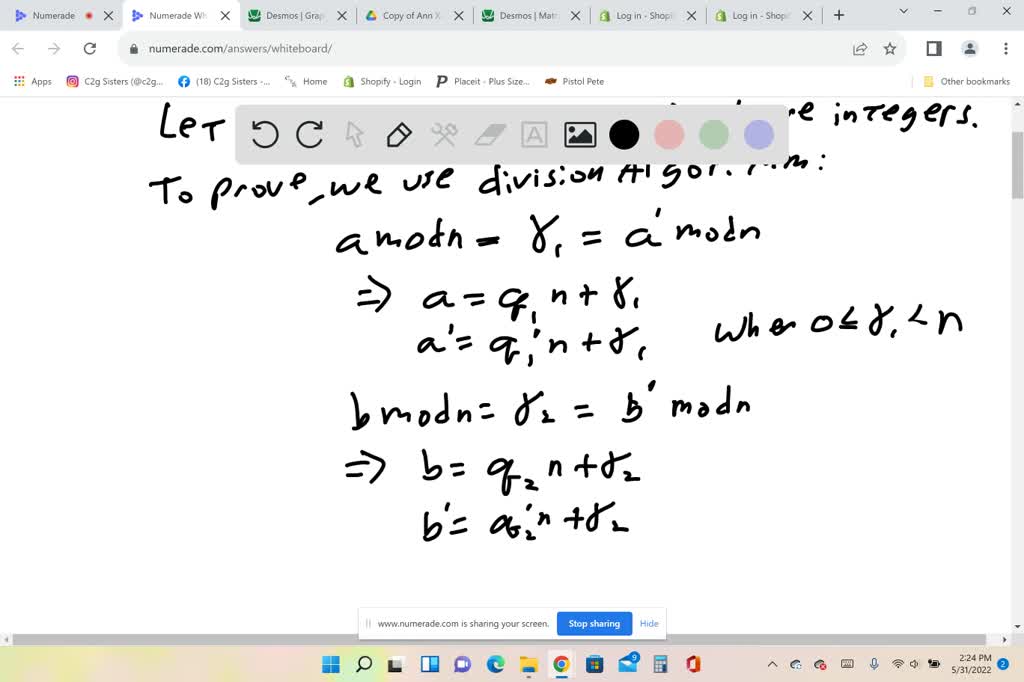 Numerade
Numerade Wh
Desmos | Grap
Copy of Ann X
Desmos | Matr
Log in - Shopi
Log in - Shopi
numerade.com/answers/whiteboard/
Apps
C2g Sisters (@c2g...
(18) C2g Sisters -...
Home
Shopify - Login
Placeit - Plus Size...
Pistol Pete
Other bookmarks
Let integers.
To prove, we use division
a mod n = γ₁ = a' mod n
⇒ a = q₁ n + γ₁
a' = q₁' n + γ₁
When 0 ≤ γ₁ < n
b mod n = γ₂ = b' mod n
⇒ b = q₂ n + γ₂
b' = q₂' n + γ₂
www.numerade.com is sharing your screen.
Stop sharing
Hide
9
2:24 PM
5/31/2022
2